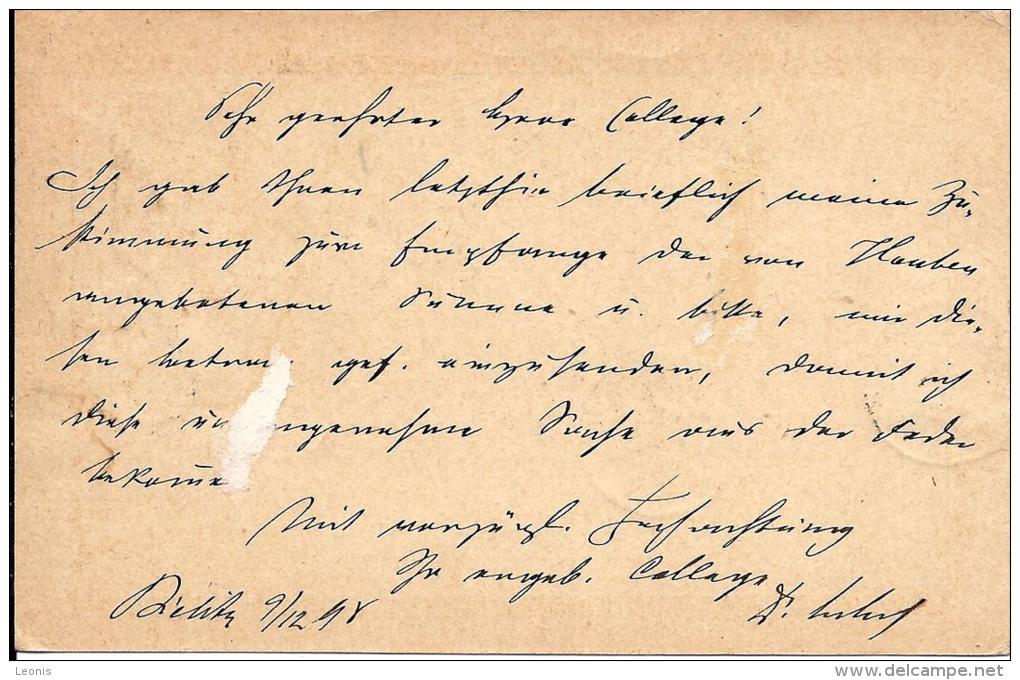 Sehr geehrter Herr College!
Ich gab Ihnen letzthin brieflich meine Zu-
stimmung zum Empfange der von Hauben
angebotenen Summe u. bitte, mir die-
sen betrag gef. einzusenden, damit ich
diese unangenehme Sache aus der Feder
bekomme
Mit vorzügl. Hochachtung
Ihr ergeb. College
Bielitz 9/12 98 Dr.
Leonis
www.delcampe.net